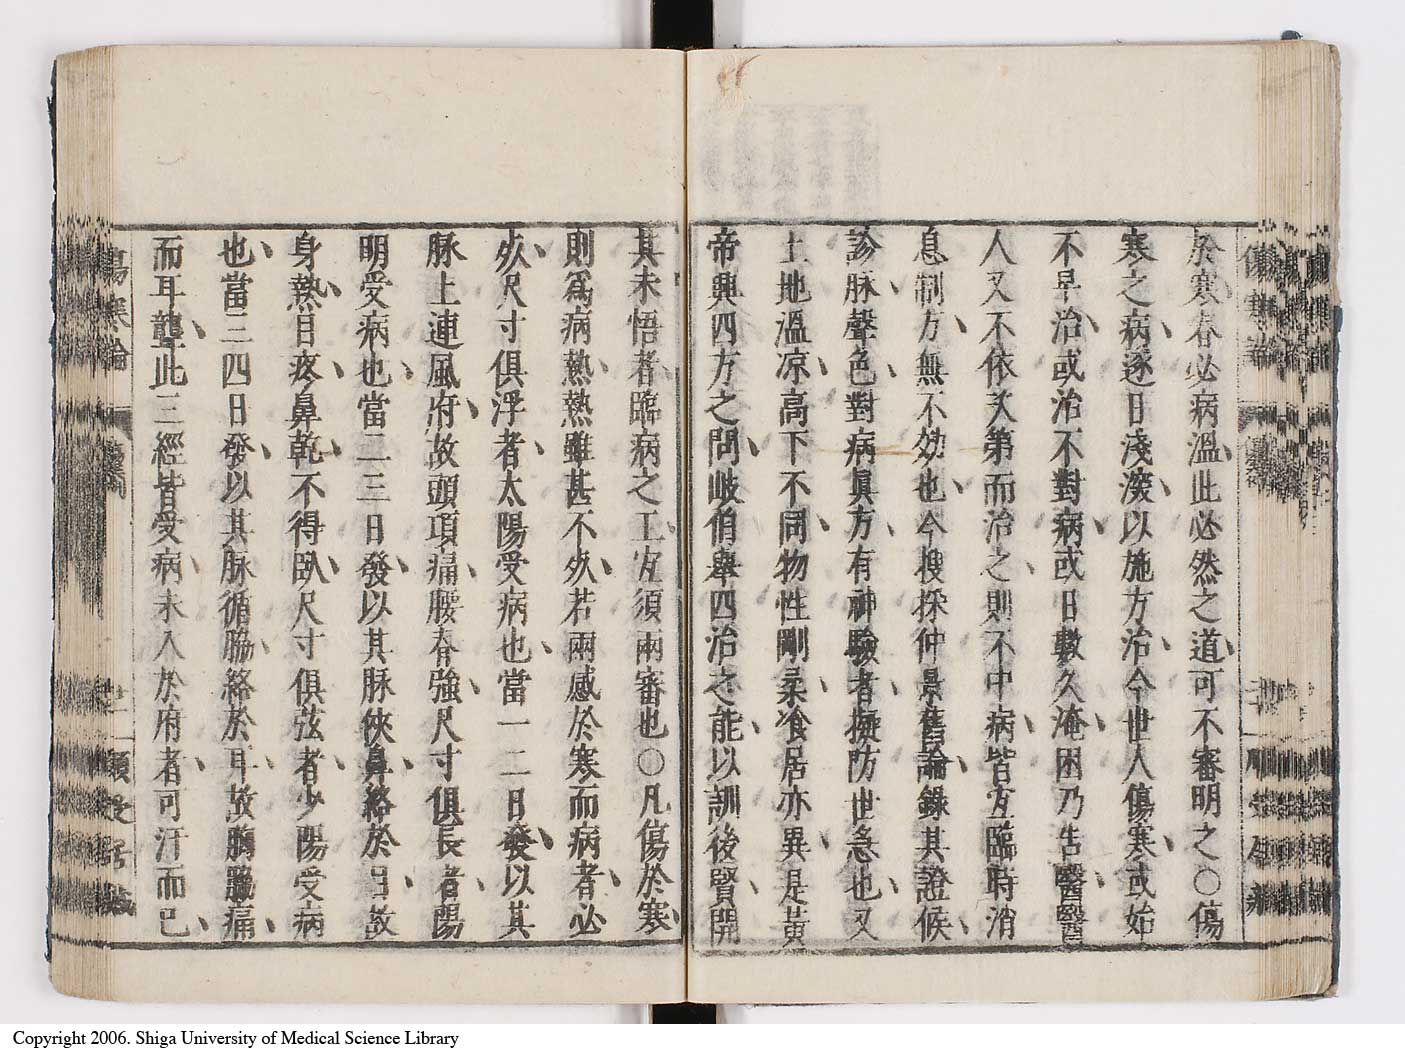 於寒春必病溫此必然之道可不審明之○傷
寒之病逐日淺深以施方治今世人傷寒或始
不早治或治不對病或日數久淹困乃告醫醫
人又不依次第而治之則不中病皆宜臨時消
息制方無不効也今搜採仲景舊論錄其證候
診脉聲色對病眞方有神驗者擬防世急也又
土地溫凉高下不同物性剛柔飡居亦異是黃
帝興四方之問岐伯舉四治之能以訓後賢開
其未悟者臨病之工宜須兩審也○凡傷於寒
則爲病熱熱雖甚不死若兩感於寒而病者必
死尺寸俱浮者太陽受病也當一二日發以其
脉上連風府故頭項痛腰脊強尺寸俱長者陽
明受病也當二三日發以其脉俠鼻絡於目故
身熱目疼鼻乾不得臥尺寸俱弦者少陽受病
也當三四日發以其脉循脇絡於耳故胸脇痛
而耳聾此三經皆受病未入於府者可汗而已
Copyright 2006. Shiga University of Medical Science Library